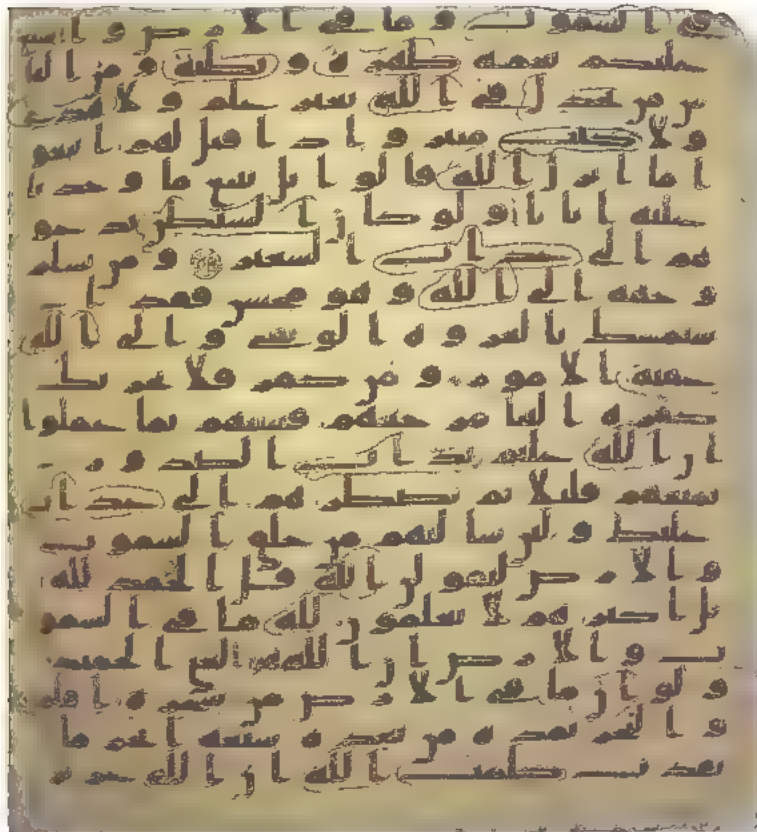 في السموت وما في الارض واسبغ
عليكم نعمه ظهرة وبطنة ومن النا
س من يجدل في الله بغير علم ولا هدى
ولا كتب منير واذا قيل لهم اتبعو
ا ما انزل الله قالوا بل نتبع ما وجدنا
عليه ابانا اولو كان الشيطن يدعو
هم الى عذاب السعير ومن يسلم
وجهه الى الله وهو محسن فقد ا
ستمسك بالعروة الوثقى والى الله
عقبة الامور ومن كفر فلا يحزنك
كفره الينا مرجعهم فننبئهم بما عملوا
ان الله عليم بذات الصدور
نمتعهم قليلا ثم نضطرهم الى عذاب
غليظ ولئن سالتهم من خلق السموت
والارض ليقولن الله قل الحمد لله
بل اكثرهم لا يعلمون لله ما في السمو
ت والارض ان الله هو الغني الحميد
ولو انما في الارض من شجرة اقلم
والبحر يمده من بعده سبعة ابحر ما
نفدت كلمت الله ان الله عزيز